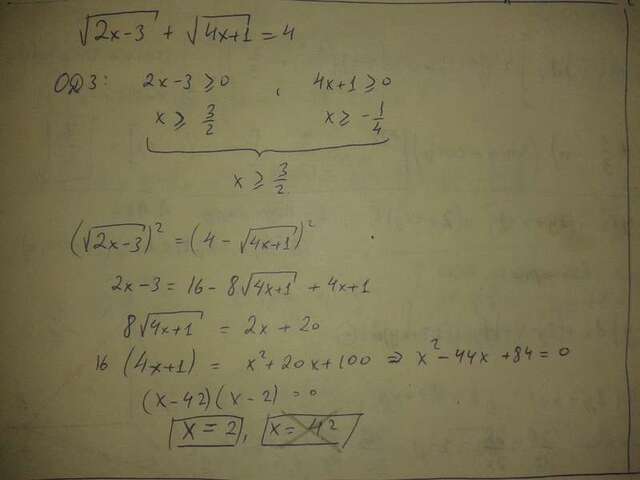 √(2x-3) + √(4x+1) = 4
ОДЗ: 2x-3 ≥ 0 , 4x+1 ≥ 0
x ≥ 3/2 x ≥ -1/4
x ≥ 3/2
(√(2x-3))² = (4 - √(4x+1))²
2x-3 = 16 - 8√(4x+1) + 4x+1
8√(4x+1) = 2x + 20
16 (4x+1) = x² + 20x + 100 ⇒ x² - 44x + 84 = 0
(x-42)(x-2) = 0
x = 2 , x = 42